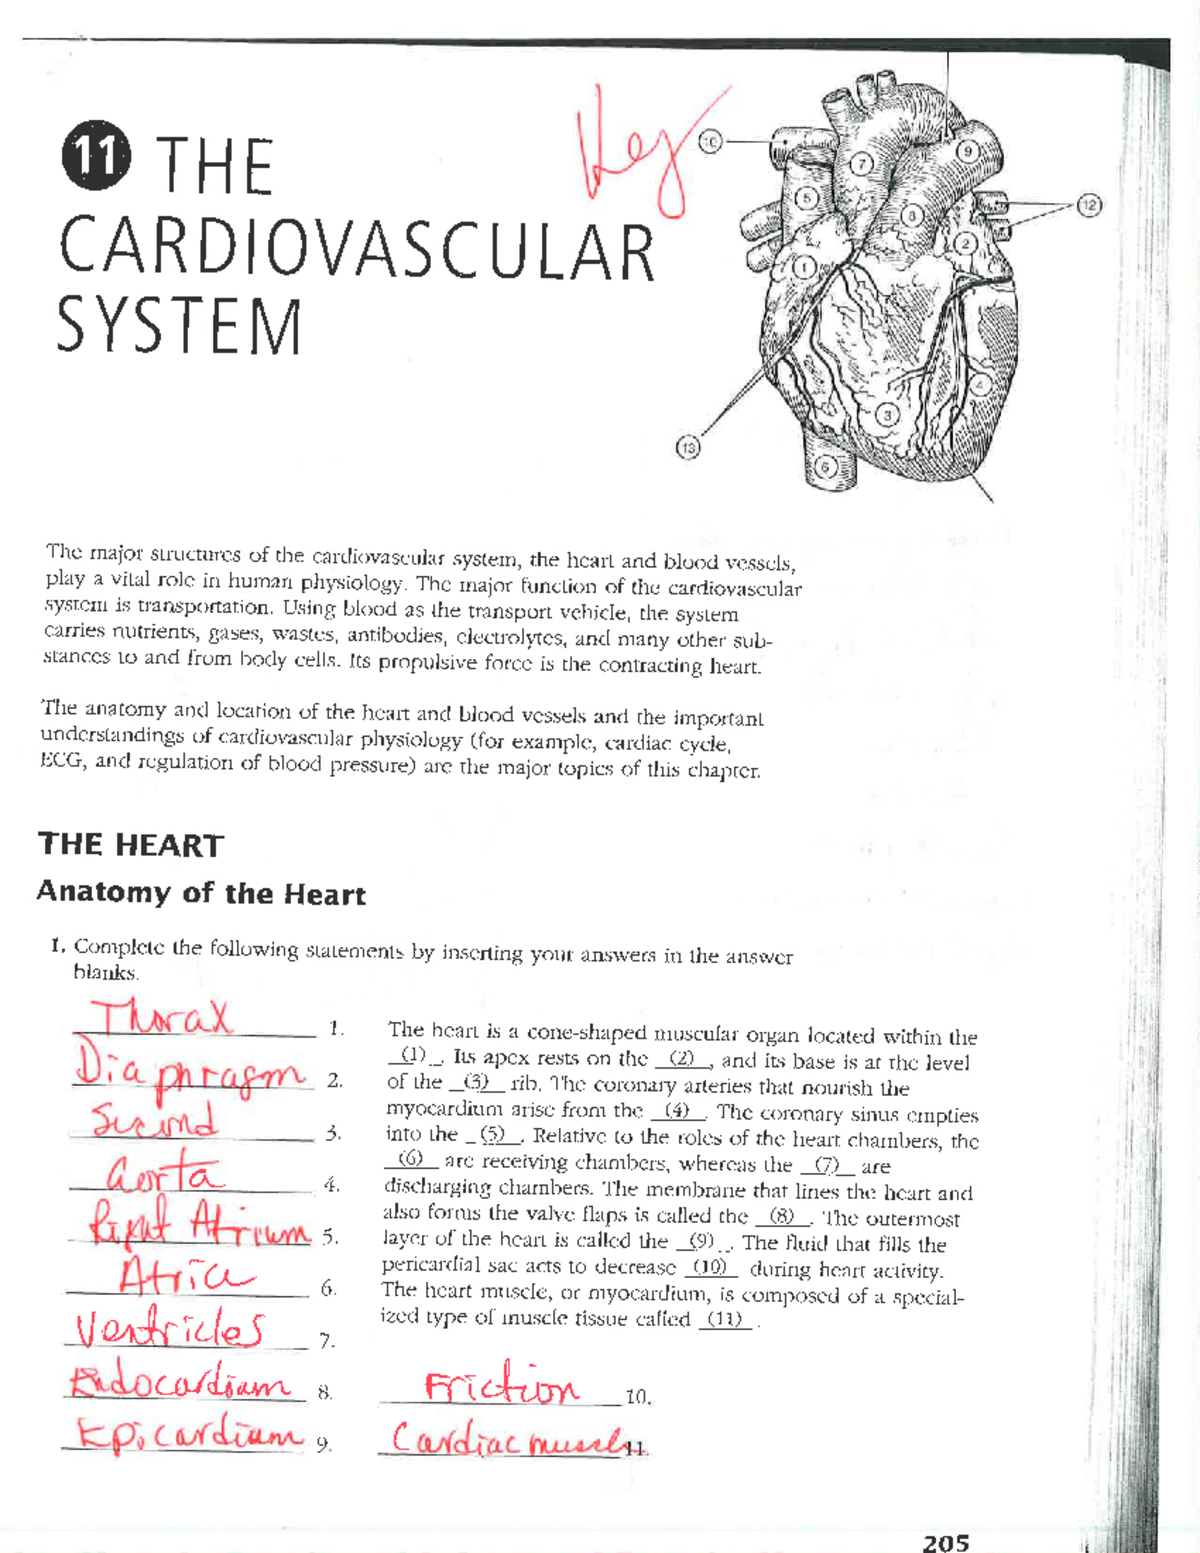 Key
11 THE
CARDIOVASCULAR
SYSTEM
10
7
9
5
8
12
2
1
4
3
13
6
The major structures of the cardiovascular system, the heart and blood vessels,
play a vital role in human physiology. The major function of the cardiovascular
system is transportation. Using blood as the transport vehicle, the system
carries nutrients, gases, wastes, antibodies, electrolytes, and many other sub-
stances to and from body cells. Its propulsive force is the contracting heart.
The anatomy and location of the heart and blood vessels and the important
understandings of cardiovascular physiology (for example, cardiac cycle,
ECG, and regulation of blood pressure) are the major topics of this chapter.
THE HEART
Anatomy of the Heart
1. Complete the following statements by inserting your answers in the answer
blanks.
Thorax 1.
Diaphragm 2.
Second 3.
Aorta 4.
Right Atrium 5.
Atria 6.
Ventricles 7.
Endocardium 8.
Epicardium 9.
The heart is a cone-shaped muscular organ located within the
(1). Its apex rests on the (2), and its base is at the level
of the (3) rib. The coronary arteries that nourish the
myocardium arise from the (4). The coronary sinus empties
into the (5). Relative to the roles of the heart chambers, the
(6) are receiving chambers, whereas the (7) are
discharging chambers. The membrane that lines the heart and
also forms the valve flaps is called the (8). The outermost
layer of the heart is called the (9). The fluid that fills the
pericardial sac acts to decrease (10) during heart activity.
The heart muscle, or myocardium, is composed of a special-
ized type of muscle tissue called (11).
Friction 10.
Cardiac muscle 11.
205